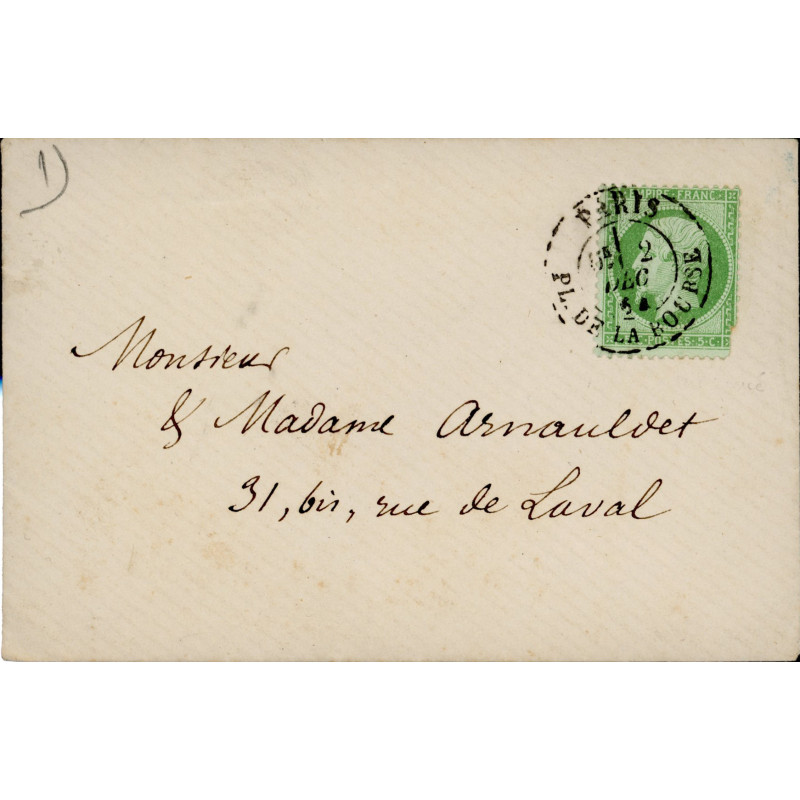 1)
EMPIRE FRANC.
PARIS
2
DEC
PL. DE LA BOURSE
5.C. POSTES 5.C.
Monsieur
& Madame Arnauldet
31, bis, rue de Laval